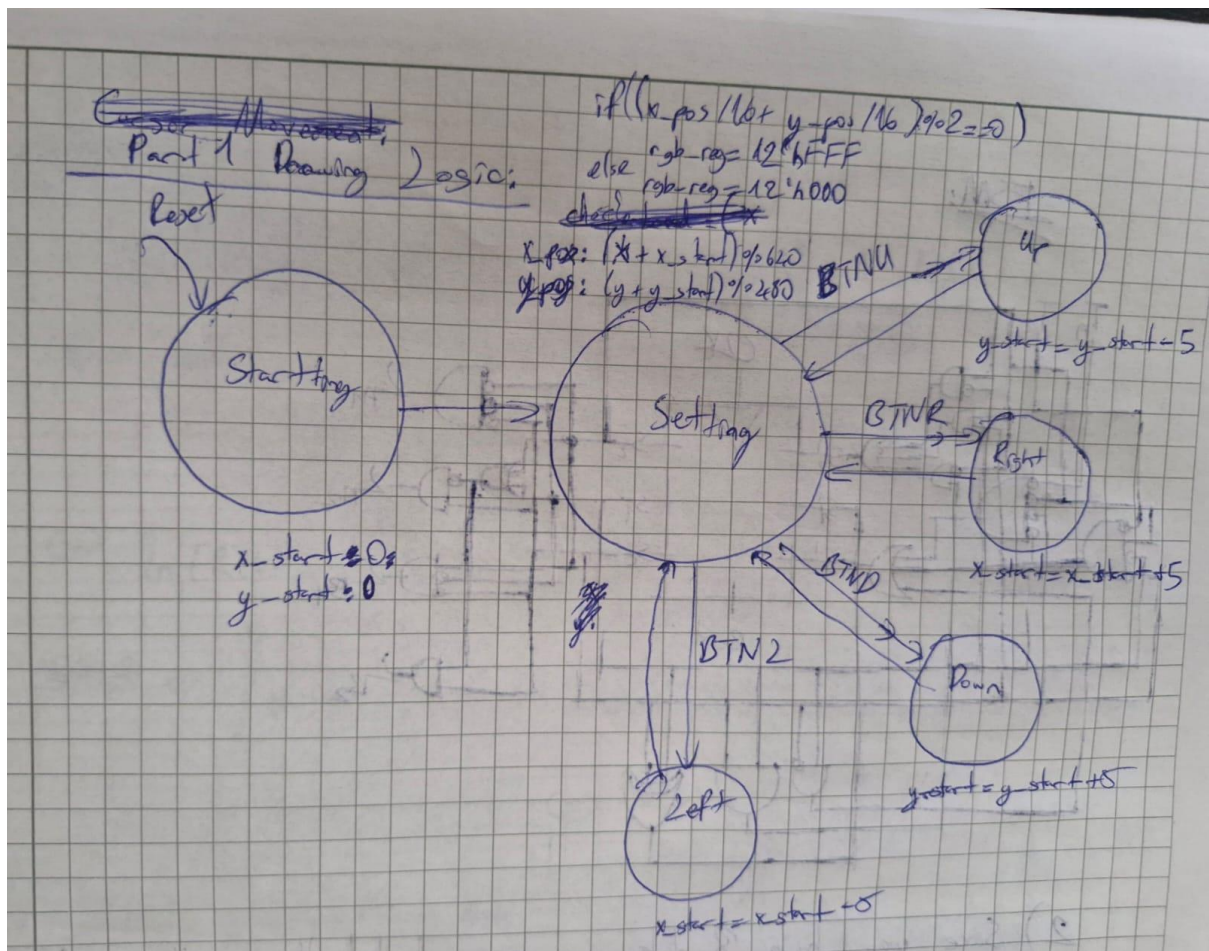 Part 1 Drawing Logic:
if((x_pos/16+ y_pos/16)%2==0)
rgb_reg=12'hFFF
else
rgb_reg=12'h000
x_pos: (x+x_start)%640
y_pos: (y+y_start)%480
Reset
Starting
x_start:0;
y_start:0
Setting
BTNU
Up
y_start=y_start-5
BTNR
Right
x_start=x_start+5
BTND
Down
y_start=y_start+5
BTNL
Left
x_start=x_start-5